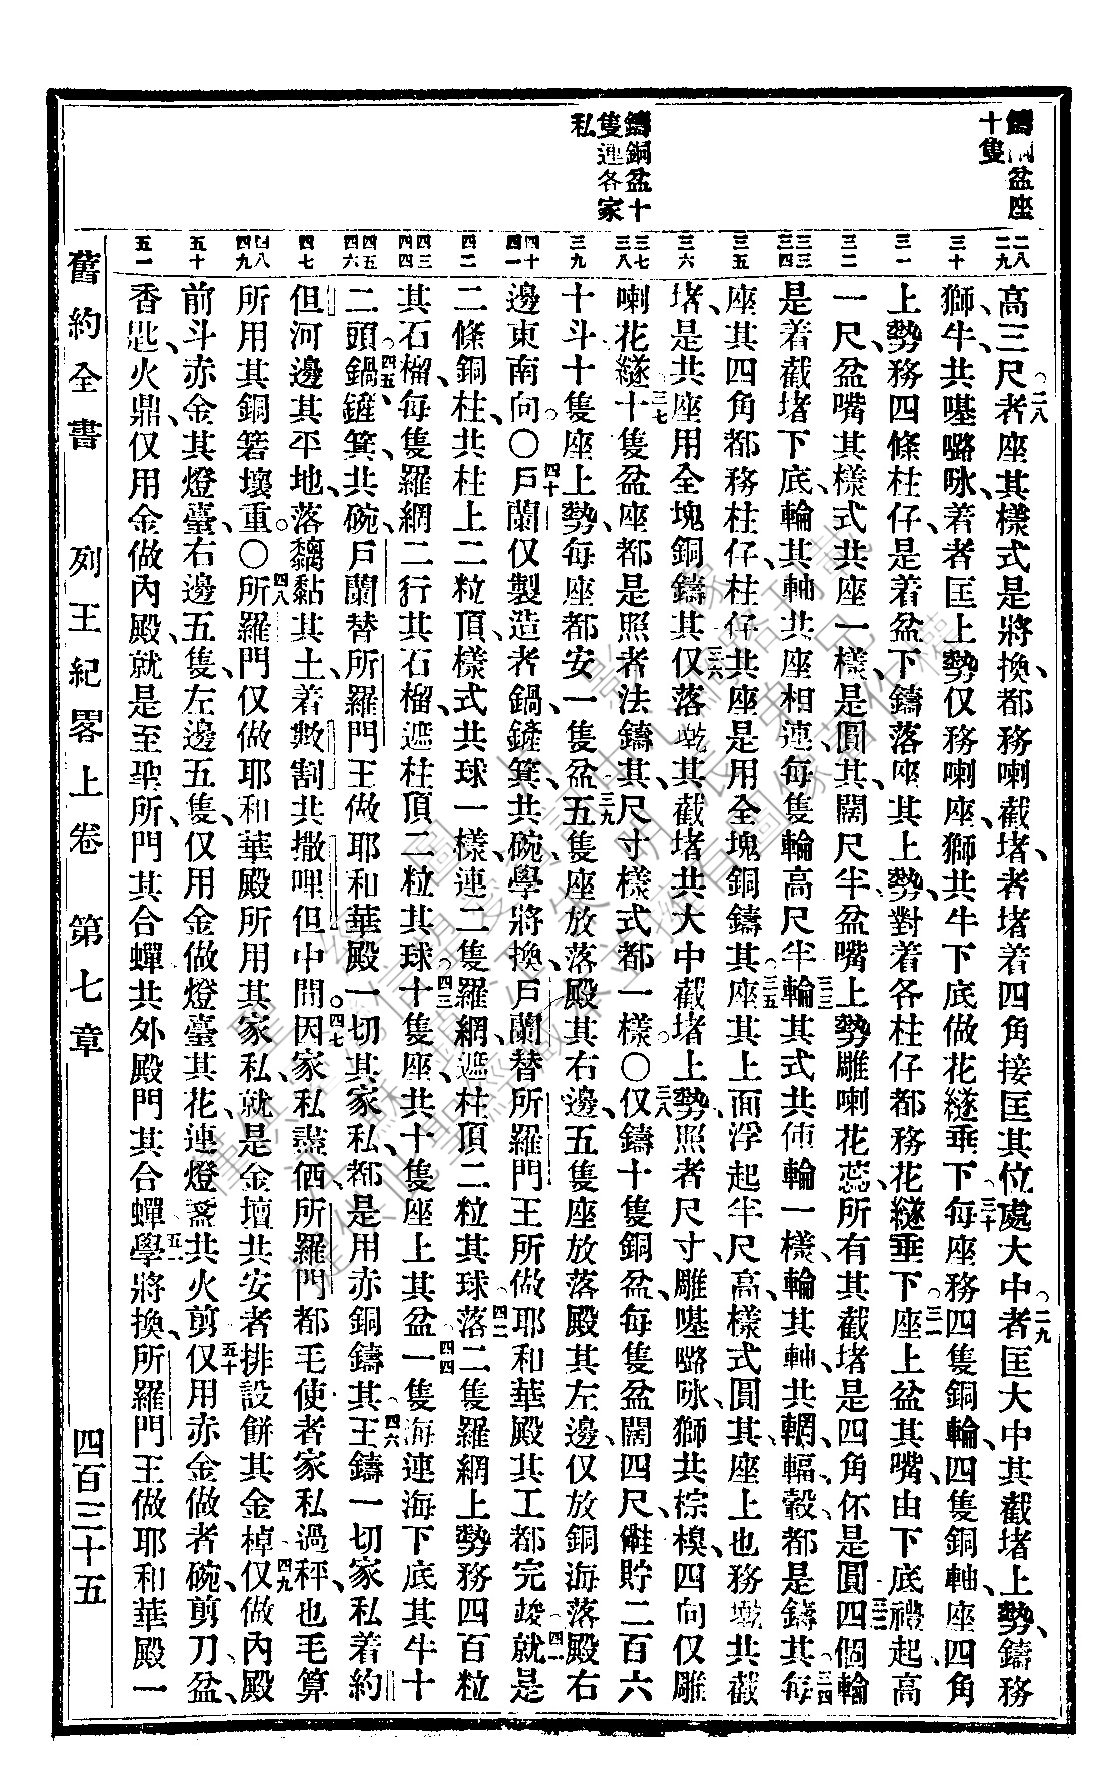 鑄銅盆座
十隻
鑄銅盆十
隻連各家
私
二八 二九
三十
三一
三二
三三 三四
三五
三六
三七 三八
三九
四十 四一
四二
四三 四四
四五 四六
四七
四八 四九
五十
五一
高三尺者座其樣式是將換都務喇截堵者堵着四角接匡其位處大中者匡大中其截堵上勢鑄務
獅牛共𠸄嚕㕸着者匡上勢仅務喇座獅共牛下底做花繸垂下每座務四隻銅輪四隻銅軸座四角
上勢務四條柱仔是着盆下鑄落座其上勢對着各柱仔都務花繸垂下座上盆其嘴由下底禮起高
一尺盆嘴其樣式共座一樣是圓其闊尺半盆嘴上勢雕喇花蕊所有其截堵是四角伓是圓四個輪
是着截堵下底輪其軸共座相連每隻輪高尺半輪其式共俥輪一樣輪其軸共輞輻轂都是鑄其每
座其四角都務柱仔柱仔共座是用全塊銅鑄其座其上面浮起半尺高樣式圓其座上也務共截
堵是共座用全塊銅鑄其仅落其截堵共大中截堵上勢照者尺寸雕𠸄嚕㕸獅共棕樹四向仅雕
喇花繸十隻盆座都是照者法鑄其尺寸樣式都一樣〇仅鑄十隻銅盆每隻盆闊四尺貯二百六
十斗十隻座上勢每座都安一隻盆五隻座放落殿其右邊五隻座放落殿其左邊仅放銅海落殿右
邊東南向〇戶蘭仅製造者鍋鏟箕共碗學將換戶蘭替所羅門王所做耶和華殿其工都完竣就是
二條銅柱共柱上二粒頂樣式共球一樣連二隻羅網遮柱頂二粒其球落二隻羅網上勢務四百粒
其石榴每隻羅網二行其石榴遮柱頂二粒其球十隻座共十隻座上其盆一隻海連海下底其牛十
二頭鍋鏟箕共碗戶蘭替所羅門王做耶和華殿一切其家私都是用赤銅鑄其王鑄一切家私着約
但河邊其平地落黐黏其土着數割共撒哩但中間因家私盡価所羅門都毛使者家私過秤也毛算
所用其銅若壞重〇所羅門仅做耶和華殿所用其家私就是金壇共安者排設餅其金棹仅做內殿
前斗赤金其燈臺右邊五隻左邊五隻仅用金做燈臺其花連燈盞共火剪仅用赤金做者碗剪刀盆
香匙火鼎仅用金做內殿就是至聖所門其合蟬共外殿門其合蟬學將換所羅門王做耶和華殿一
舊約全書 列王紀畧上卷 第七章 四百三十五